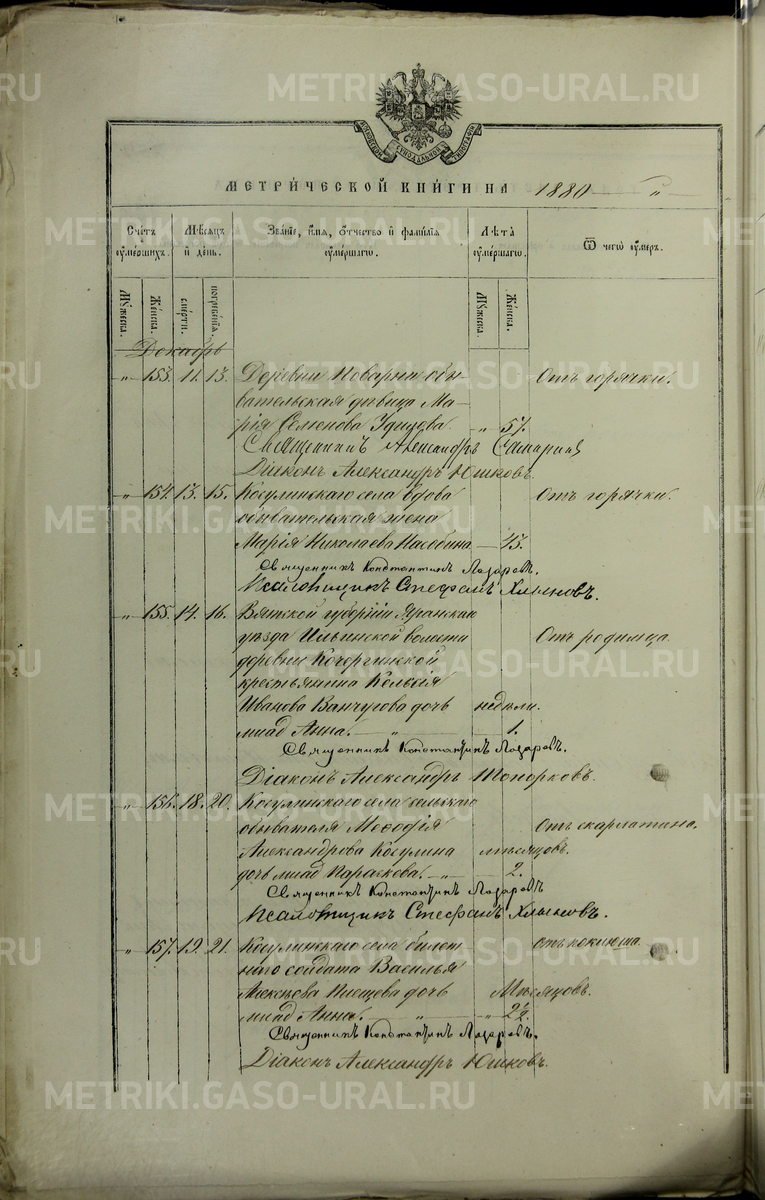 METRIKI.GASO-URAL.RU
МЕТРИЧЕСКОЙ КНИГИ НА 1880
Счетъ умершихъ.
Мѣсяцъ и день.
Званіе, имя, отчество и фамилія умершаго.
Лѣта умершаго.
Ѿ чего умеръ.
Мужеска. Женска. смерти. погребенія. Мужеска. Женска.
Декабрь
" 153. 11. 13. Деревни Поварни обы- Отъ горячки.
вательская дѣвица Ма-
рія Семенова " 57.
Священникъ Александръ
Діаконъ Александръ Юшковъ.
" 154. 13. 15. Косулинскаго села вдова Отъ горячки.
обывательская жена
Марія Николаева
Священникъ Константинъ Лазаревъ.
Псаломщикъ Стефанъ Хлыновъ.
" 155. 14. 16. Вятской губерніи Яранскаго
уѣзда Ильинской волости Отъ родимца
деревни Кочергинской
крестьянина
Иванова дочь недѣли.
млад Анна. " 1.
Священникъ Константинъ Лазаревъ.
Діаконъ Александръ Топорковъ.
" 156. 18. 20. Косулинскаго села сельскаго
обывателя Меѳодія Отъ скарлатина.
Александрова Косулина мѣсяцовъ.
дочь млад Параскева. " 2.
Священникъ Константинъ Лазаревъ
Псаломщикъ Стефанъ Хлыновъ.
" 157. 19. 21. Косулинскаго села билет-
наго солдата Василья
дочь Мѣсяцовъ.
млад Анна. " " 2½.
Священникъ Константинъ Лазаревъ.
Діаконъ Александръ Юшковъ.